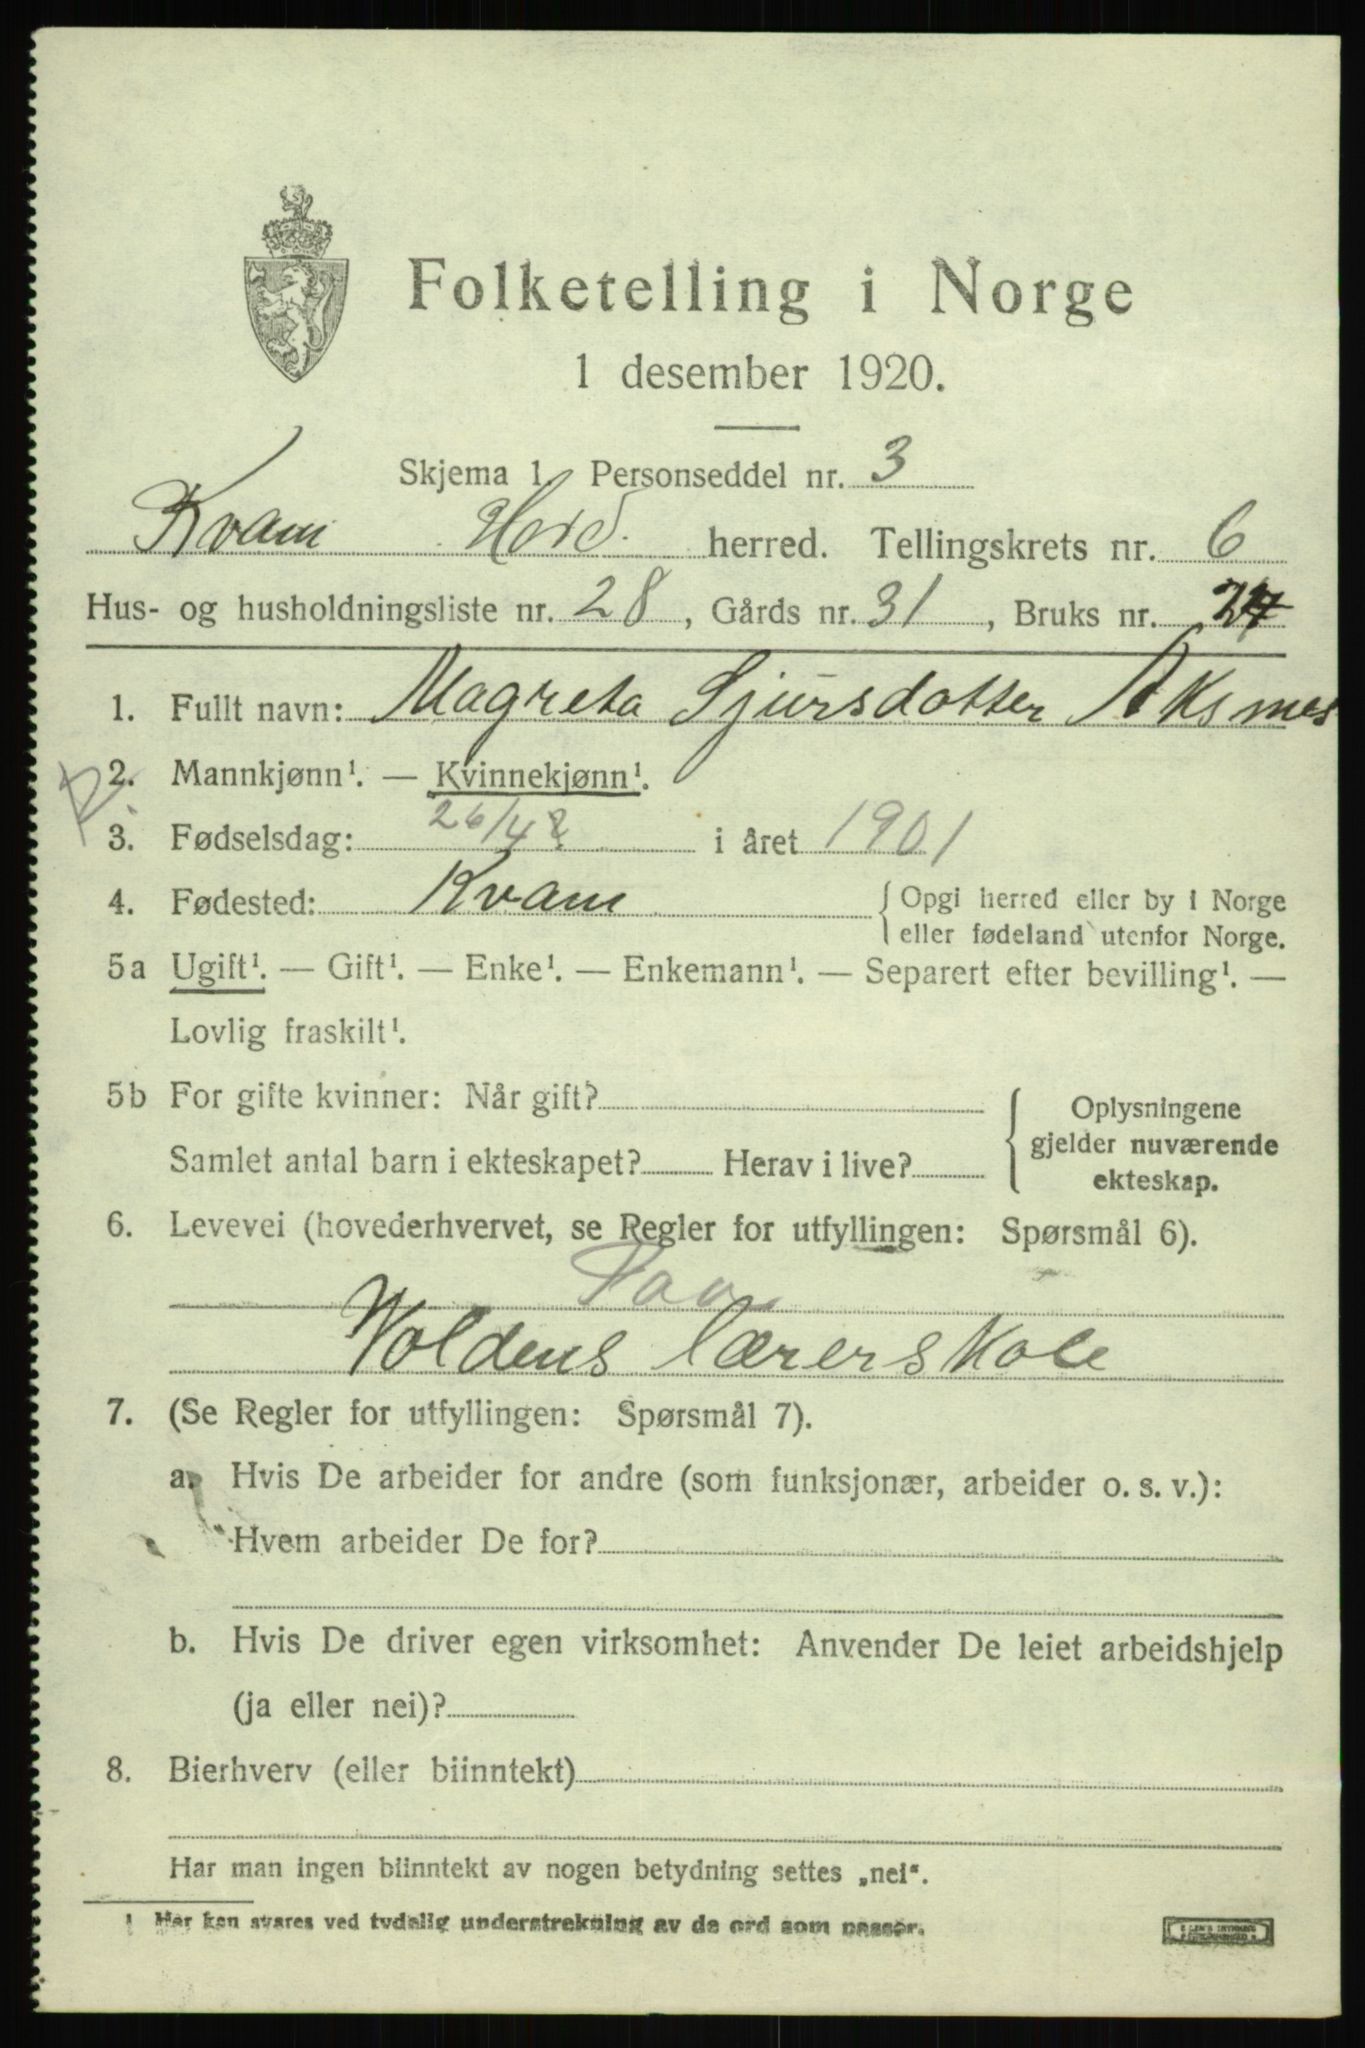 Folketelling i Norge
1 desember 1920.
Skjema 1. Personseddel nr. 3
Kvam Hord. herred. Tellingskrets nr. 6
Hus- og husholdningsliste nr. 28, Gårds nr. 31, Bruks nr.
1. Fullt navn: Magreta Sjursdotter Aksnes
2. Mannkjønn¹. — Kvinnekjønn¹.
3. Fødselsdag: 26/4 i året 1901
4. Fødested: Kvam { Opgi herred eller by i Norge
eller fødeland utenfor Norge.
5a Ugift¹. — Gift¹. — Enke¹. — Enkemann¹. — Separert efter bevilling¹. —
Lovlig fraskilt¹.
5b For gifte kvinner: Når gift?
Samlet antal barn i ekteskapet? Herav i live?
{ Oplysningene
gjelder nuværende
ekteskap.
6. Levevei (hovederhvervet, se Regler for utfyllingen: Spørsmål 6).
Woldens lærerskole
7. (Se Regler for utfyllingen: Spørsmål 7).
a. Hvis De arbeider for andre (som funksjonær, arbeider o. s. v.):
Hvem arbeider De for?
b. Hvis De driver egen virksomhet: Anvender De leiet arbeidshjelp
(ja eller nei)?
8. Bierhverv (eller biinntekt)
Har man ingen biinntekt av nogen betydning settes „nei“.
¹ Her kan svares ved tydelig understrekning av de ord som passer.